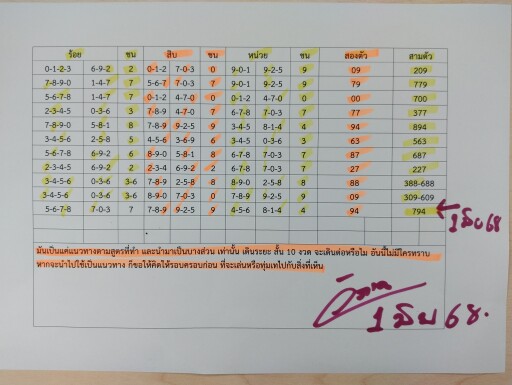 ร้อย ชน สิบ ชน หน่วย ชน สองตัว สามตัว
0-1-2-3 6-9-2 2 0-1-2 7-0-3 0 9-0-1 9-2-5 9 09 209
7-8-9-0 1-4-7 7 5-6-7 7-0-3 7 9-0-1 9-2-5 9 79 779
5-6-7-8 1-4-7 7 0-1-2 4-7-0 0 7-0-3 0 00 700
2-3-4-5 0-3-6 3 7-8-9 4-7-0 7 6-7-8 7-0-3 7 77 377
7-8-9-0 5-8-1 8 7-8-9 9-2-5 9 3-4-5 8-1-4 4 94 894
3-4-5-6 2-5-8 5 4-5-6 3-6-9 6 0-3-6 3 63 563
5-6-7-8 6-9-2 6 8-9-0 5-8-1 8 6-7-8 7-0-3 7 87 687
2-3-4-5 6-9-2 2 2-3-4 6-9-2 2 7-0-3 7 27 227
3-4-5-6 0-3-6 3-6 7-8-9 2-5-8 8 8-9-0 2-5-8 8 88 388-688
3-4-5-6 0-3-6 3-6 8-9-0 7-0-3 0 7-8-9 9-2-5 9 09 309-609
5-6-7-8 7-0-3 7 7-8-9 9-2-5 9 4-5-6 8-1-4 4 94 794
1 มิย 68
มันเป็นแค่แนวทางตามสูตรที่ทำ และนำมาเป็นบางส่วน เท่านั้น เดินระยะ สั้น 10 งวด จะเดินต่อหรือไม่ อันนี้ไม่มีใครทราบ
หากจะนำไปใช้เป็นแนวทาง ก็ขอให้คิดให้รอบครอบก่อน ที่จะเล่นหรือทุ่มเทไปกับสิ่งที่เห็น
1 มิย 68.